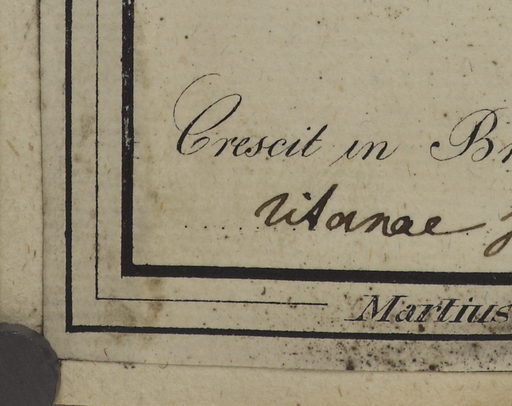 Crescit in Br
ritanae
Martius